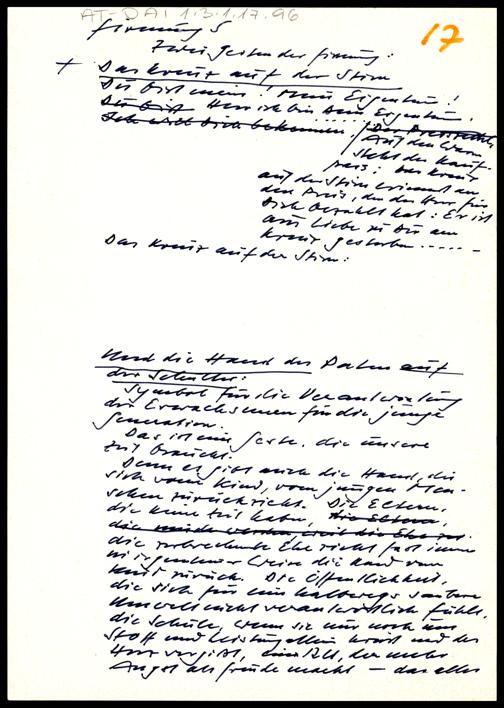 AT-DAI 1.3.1.17.96
17
Firmung 5
Zwei Gesten der Firmung:
+ Das Kreuz auf der Stirn
Du bist mein! Mein Eigentum!
Du bist Herr ich bin Dein Eigentum.
Ich will Dich bekennen. / Der Preis
Auf den Waren
steht der Kauf-
preis: Das Kreuz
auf der Stirn erinnert an
den Preis, den der Herr für
Dich bezahlt hat: Er ist
aus Liebe zu Dir am
Kreuz gestorben.....
Das Kreuz auf der Stirn:
Und die Hand des Paten auf
der Schulter:
Symbol für die Verantwortung
der Erwachsenen für die junge
Generation.
Das ist eine Geste, die unsere
Zeit braucht.
Denn es gibt auch die Hand, die
sich vom Kind, vom jungen Men-
schen zurückzieht. Die Eltern,
die keine Zeit haben, die Eltern,
die weil die Ehe
die zerbrechende Ehe zieht fast immer
in irgendeiner Weise die Hand vom
Kind zurück. Die Öffentlichkeit,
die sich für eine halbwegs saubere
Umwelt nicht verantwortlich fühlt,
die Schule, wenn sie nur noch um
Stoff und Leistung allein kreist und das
Herz vergißt, der mehr
Angst als Freude macht – das alles